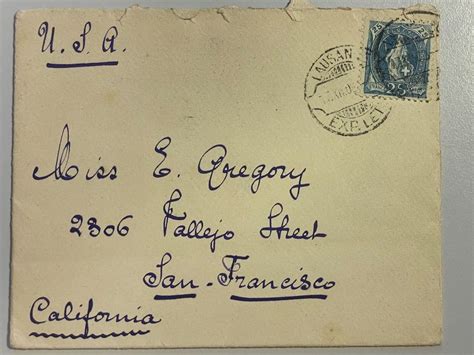 U.S.A.
LAUSAN
EXP. LET
25
Miss E. Gregory
2306 Vallejo Street
San-Francisco
California